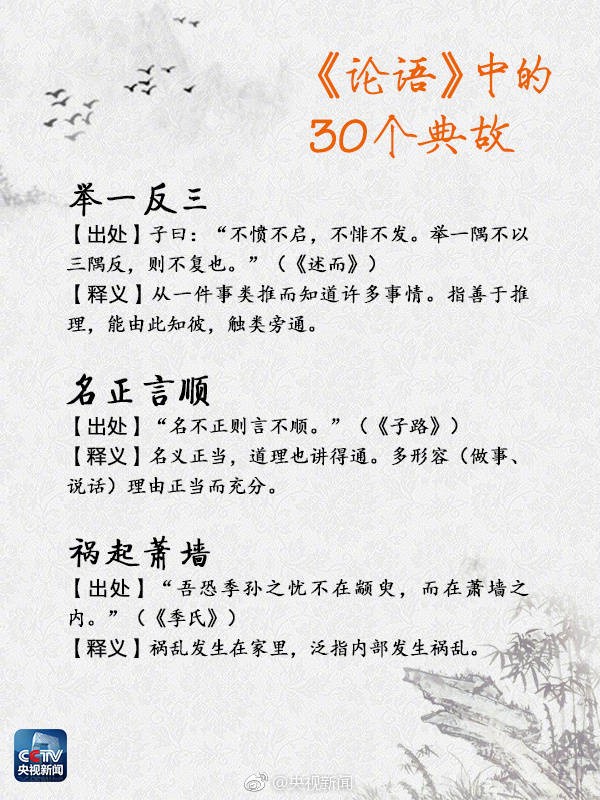 《论语》中的
30个典故
举一反三
【出处】子曰：“不愤不启，不悱不发。举一隅不以
三隅反，则不复也。”（《述而》）
【释义】从一件事类推而知道许多事情。指善于推
理，能由此知彼，触类旁通。
名正言顺
【出处】“名不正则言不顺。”（《子路》）
【释义】名义正当，道理也讲得通。多形容（做事、
说话）理由正当而充分。
祸起萧墙
【出处】“吾恐季孙之忧不在颛臾，而在萧墙之
内。”（《季氏》）
【释义】祸乱发生在家里，泛指内部发生祸乱。
CCTV
央视新闻
@央视新闻